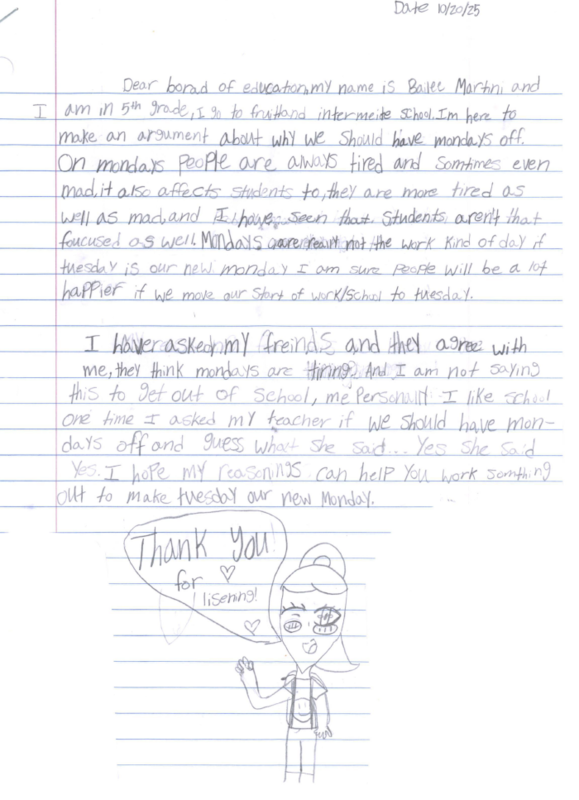 Date 10/20/25
Dear borad of education, my name is Bailee Martini and
I am in 5th grade, I go to fruitland intermeite school. Im here to
make an argument about why we should have mondays off.
On mondays People are always tired and Somtimes even
mad, it also affects students to, they are more tired as
well as mad, and I have seen that students aren't that
foucused as well. Mondays are really not the work kind of day if
tuesday is our new monday I am sure people will be a lot
happier if we move our start of work/school to tuesday.
I have asked my freinds and they agree with
me, they think mondays are tiring. And I am not saying
this to get out of school, me Personally I like school
one time I asked my teacher if we should have mon-
days off and guess what she said... Yes she said
Yes. I hope my reasonings can help you work somthing
out to make tuesday our new Monday.
Thank You!
for
lisening!